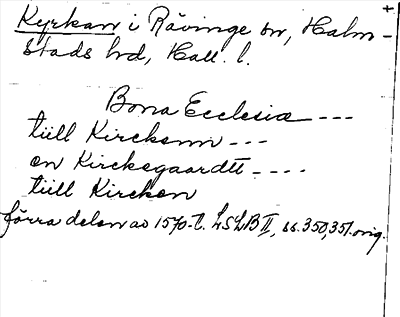 Kyrkan i Rävinge sn, Halm-
stads hd, Hall. l.
Bona Ecclesiæ ---
tiill Kirckenn ---
en Kirckegaardtt ----
tiill Kircken
förra delen av 1570-t. LSLB II, ss. 350, 351. orig.